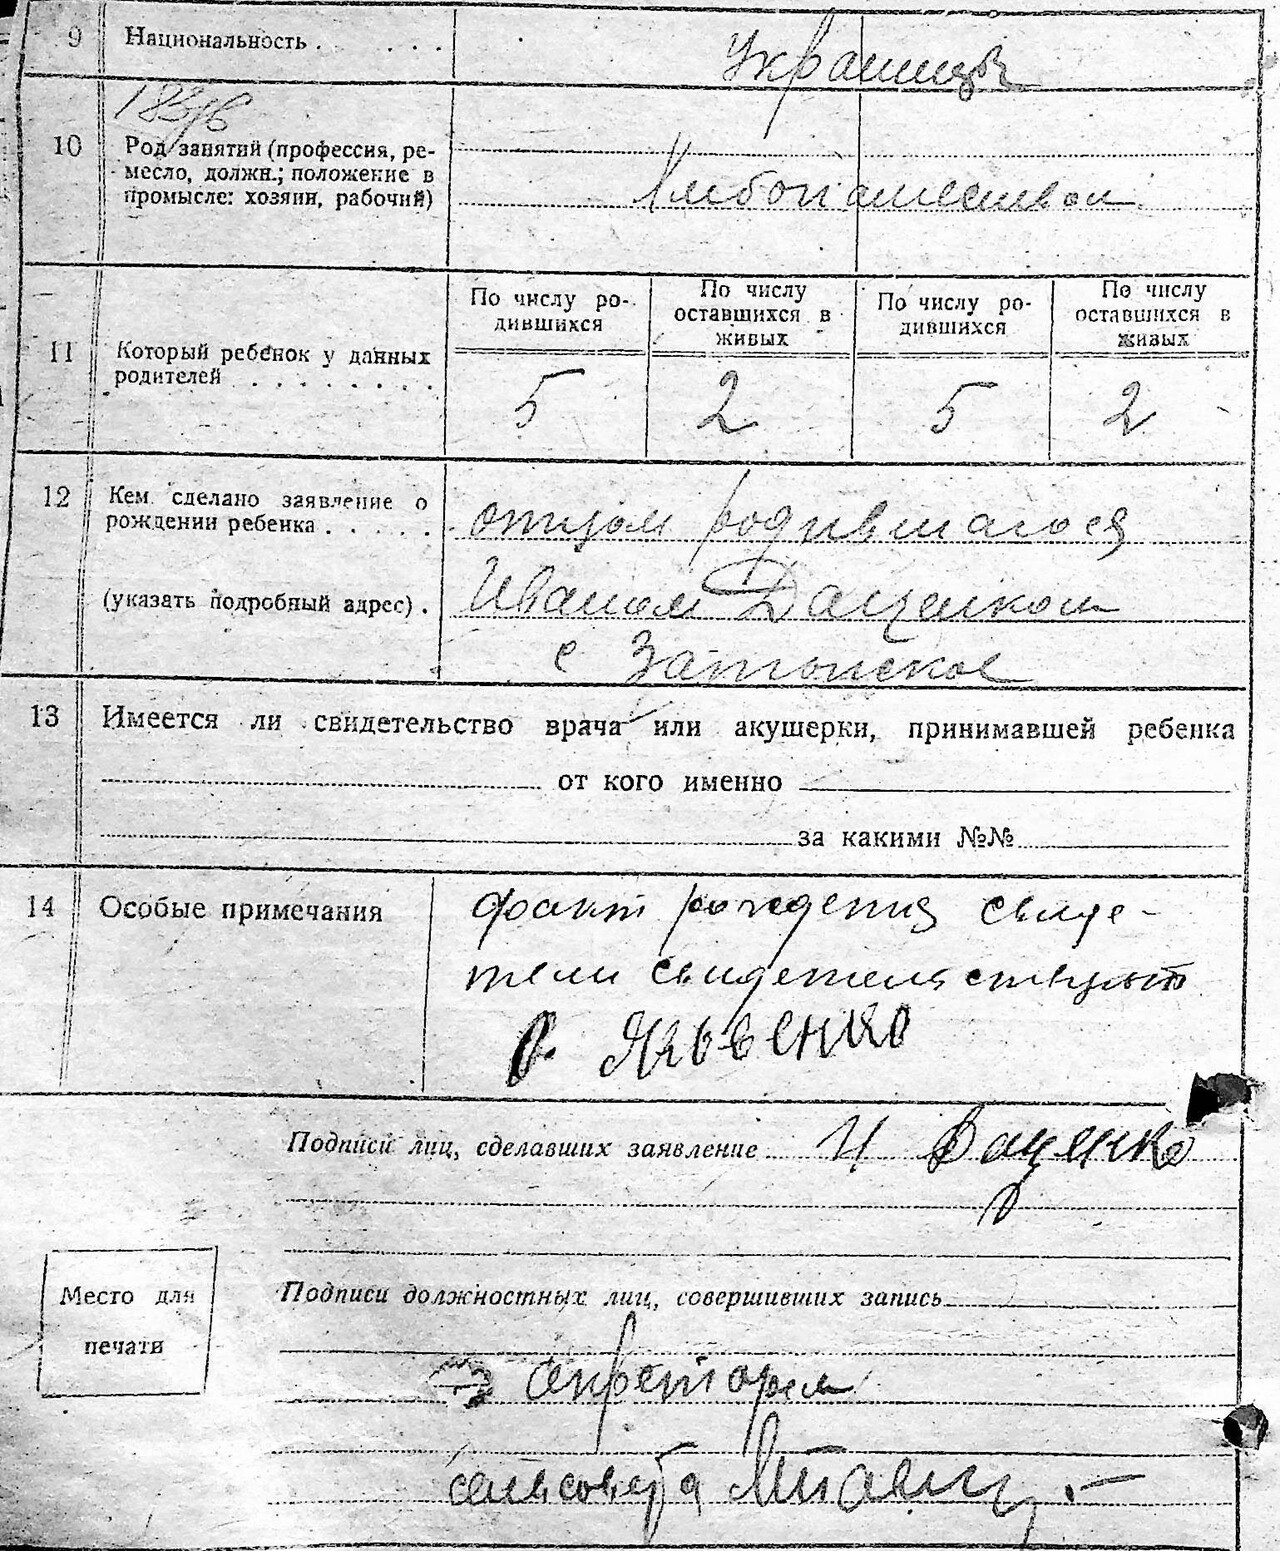 9 Национальность . . . . . Украинцы
10 Род занятий (профессия, ре-
месло, должн.; положение в
промысле: хозяин, рабочий)
Хлебопашеством
По числу ро-
дившихся
По числу
оставшихся в
живых
По числу ро-
дившихся
По числу
оставшихся в
живых
11 Который ребенок у данных
родителей . . . . . . . .
5 2 5 2
12 Кем сделано заявление о
рождении ребенка . . . . .
отцом родившагося
(указать подробный адрес) . Иваном Даценком
с Затонское
13 Имеется ли свидетельство врача или акушерки, принимавшей ребенка
от кого именно
за какими №№
14 Особые примечания факт рождения свиде-
тели свидетельствуют
Яковенко
Подписи лиц, сделавших заявление И Даценко
Место для
печати
Подписи должностных лиц, совершивших запись
секретарь
сельсовета